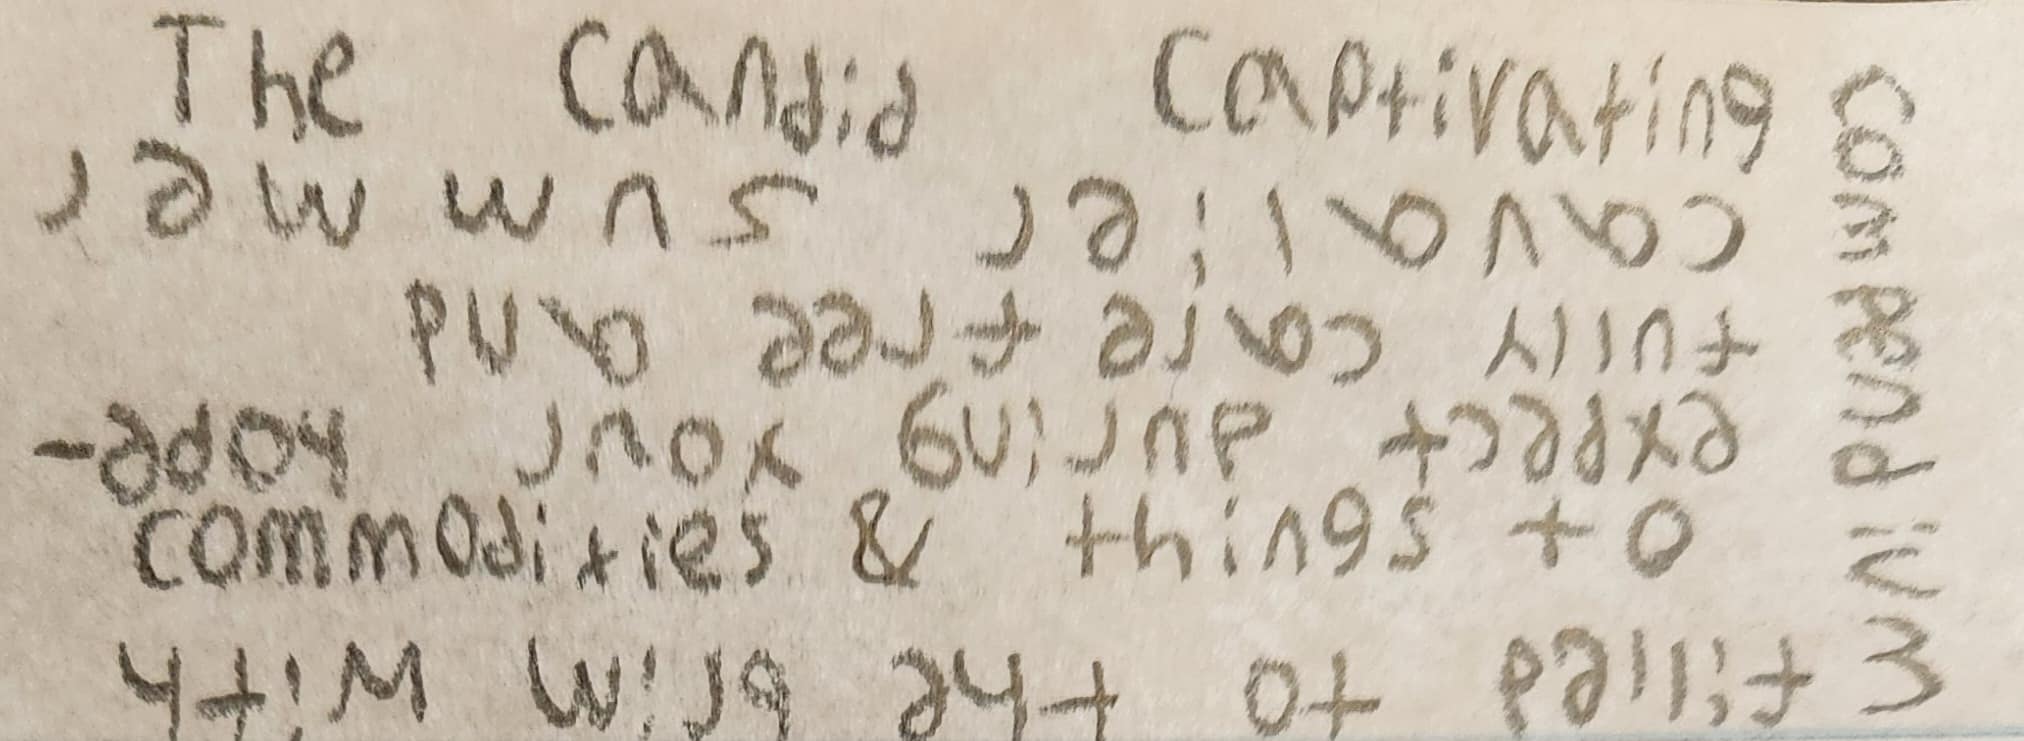 The Candid Captivating
Compendium
filled to the brim with
commodities & things to
expect during your hope-
fully care free and
cavalier summer